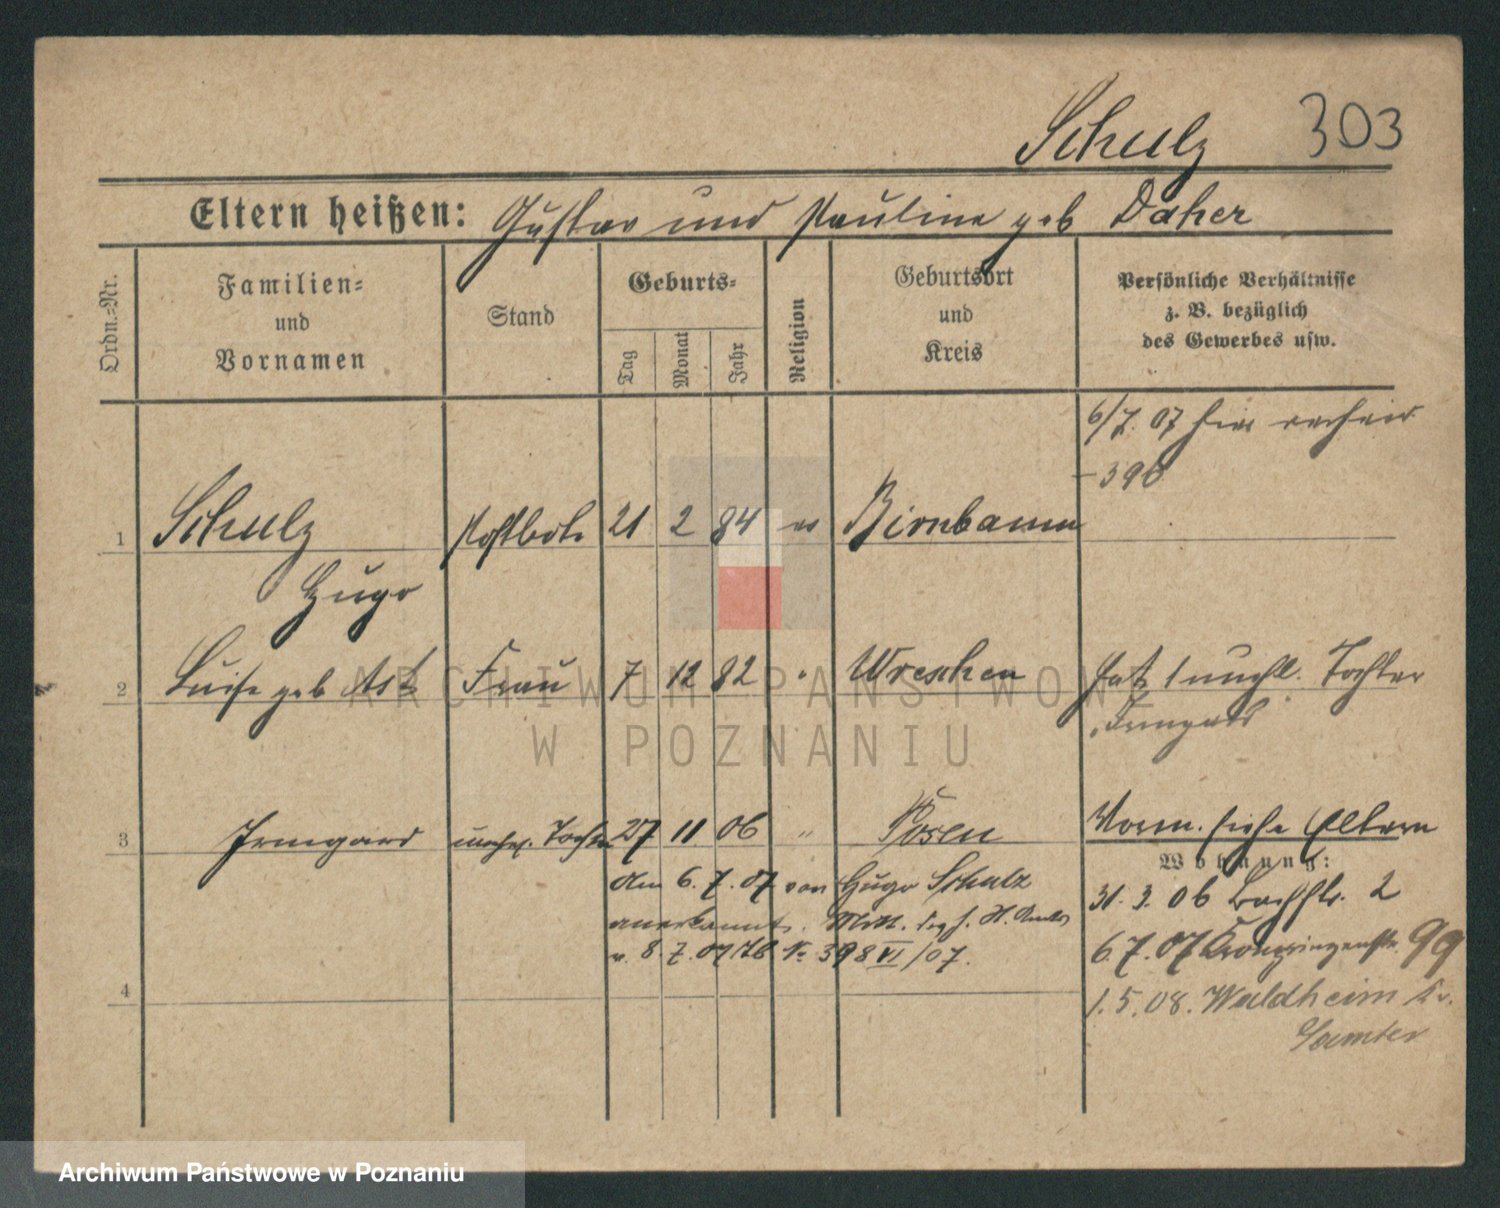 Schulz 303
Eltern heißen: Gustav und Pauline geb Daher
Ordn.=Nr.
Familien=
und
Vornamen
Stand
Geburts=
Tag
Monat
Jahr
Religion
Geburtsort
und
Kreis
Persönliche Verhältnisse
z. B. bezüglich
des Gewerbes usw.
6/7. 07 hier
396
1 Schulz Postbote 21 2 84 ev Birnbaum
Hugo
2 Luise geb Ast Frau 7 12 82 " Wreschen hat 1 unehl. Tochter
Irmgard
3 Irmgard unehel. Tochter 27 11 06 " Posen Vorm. siehe Eltern
Wohnung:
am 6. 7. 07 von Hugo Schulz
anerkannt. Mitt. des h. St. Amtes
v. 8. 7. 07 No 398 VI/07.
31. 3. 06 Bachstr. 2
6. 7. 07 Kronprinzenstr. 99
4
1. 5. 08. Waldheim Kr.
Samter
ARCHIWUM PAŃSTWOWE
W POZNANIU
Archiwum Państwowe w Poznaniu